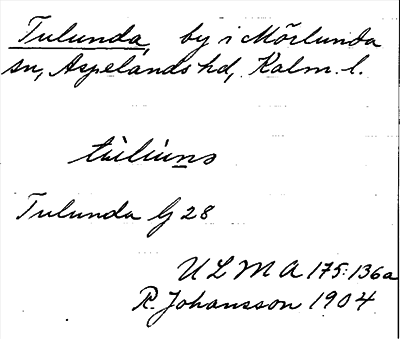 Tulunda, by i Mörlunda
sn, Aspelands hd, Kalm. l.
Tulunda G 28
ULMA 175:136a
R. Johansson 1904